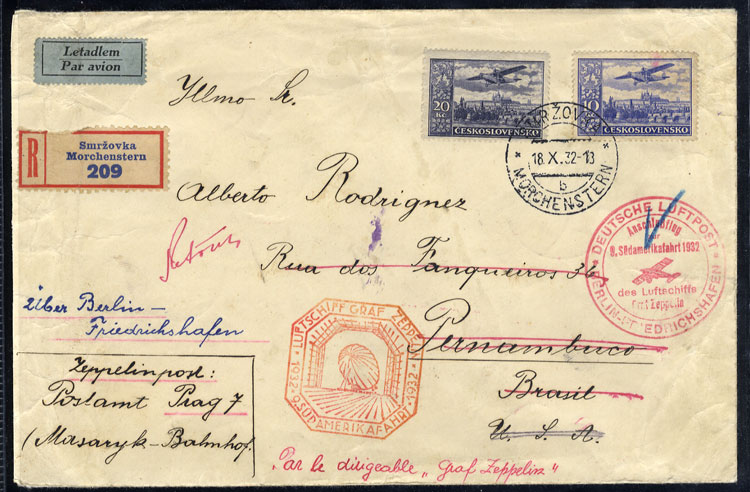 Letadlem
Par avion
Illmo Sr.
20
Kč
ČESKOSLOVENSKO
10
ČESKOSLOVENSKO
R
Smržovka
Morchenstern
209
SMRŽOVKA
18.X.32-13
b
MORCHENSTERN
Alberto Rodrignez
Retour
Rua dos Fanqueiros 34
DEUTSCHE LUFTPOST
Anschlußflug
8. Südamerikafahrt 1932
des Luftschiffs
Graf Zeppelin
BERLIN-FRIEDRICHSHAFEN
Über Berlin-
Friedrichshafen
LUFTSCHIFF GRAF ZEPPELIN
1932
1932
9. SÜDAMERIKAFAHRT
Pernambuco
Brasil
U. S. A.
Zeppelinpost:
Postamt Prag 7
(Masaryk-Bahnhof.
Par le dirigeable „Graf Zeppelin"